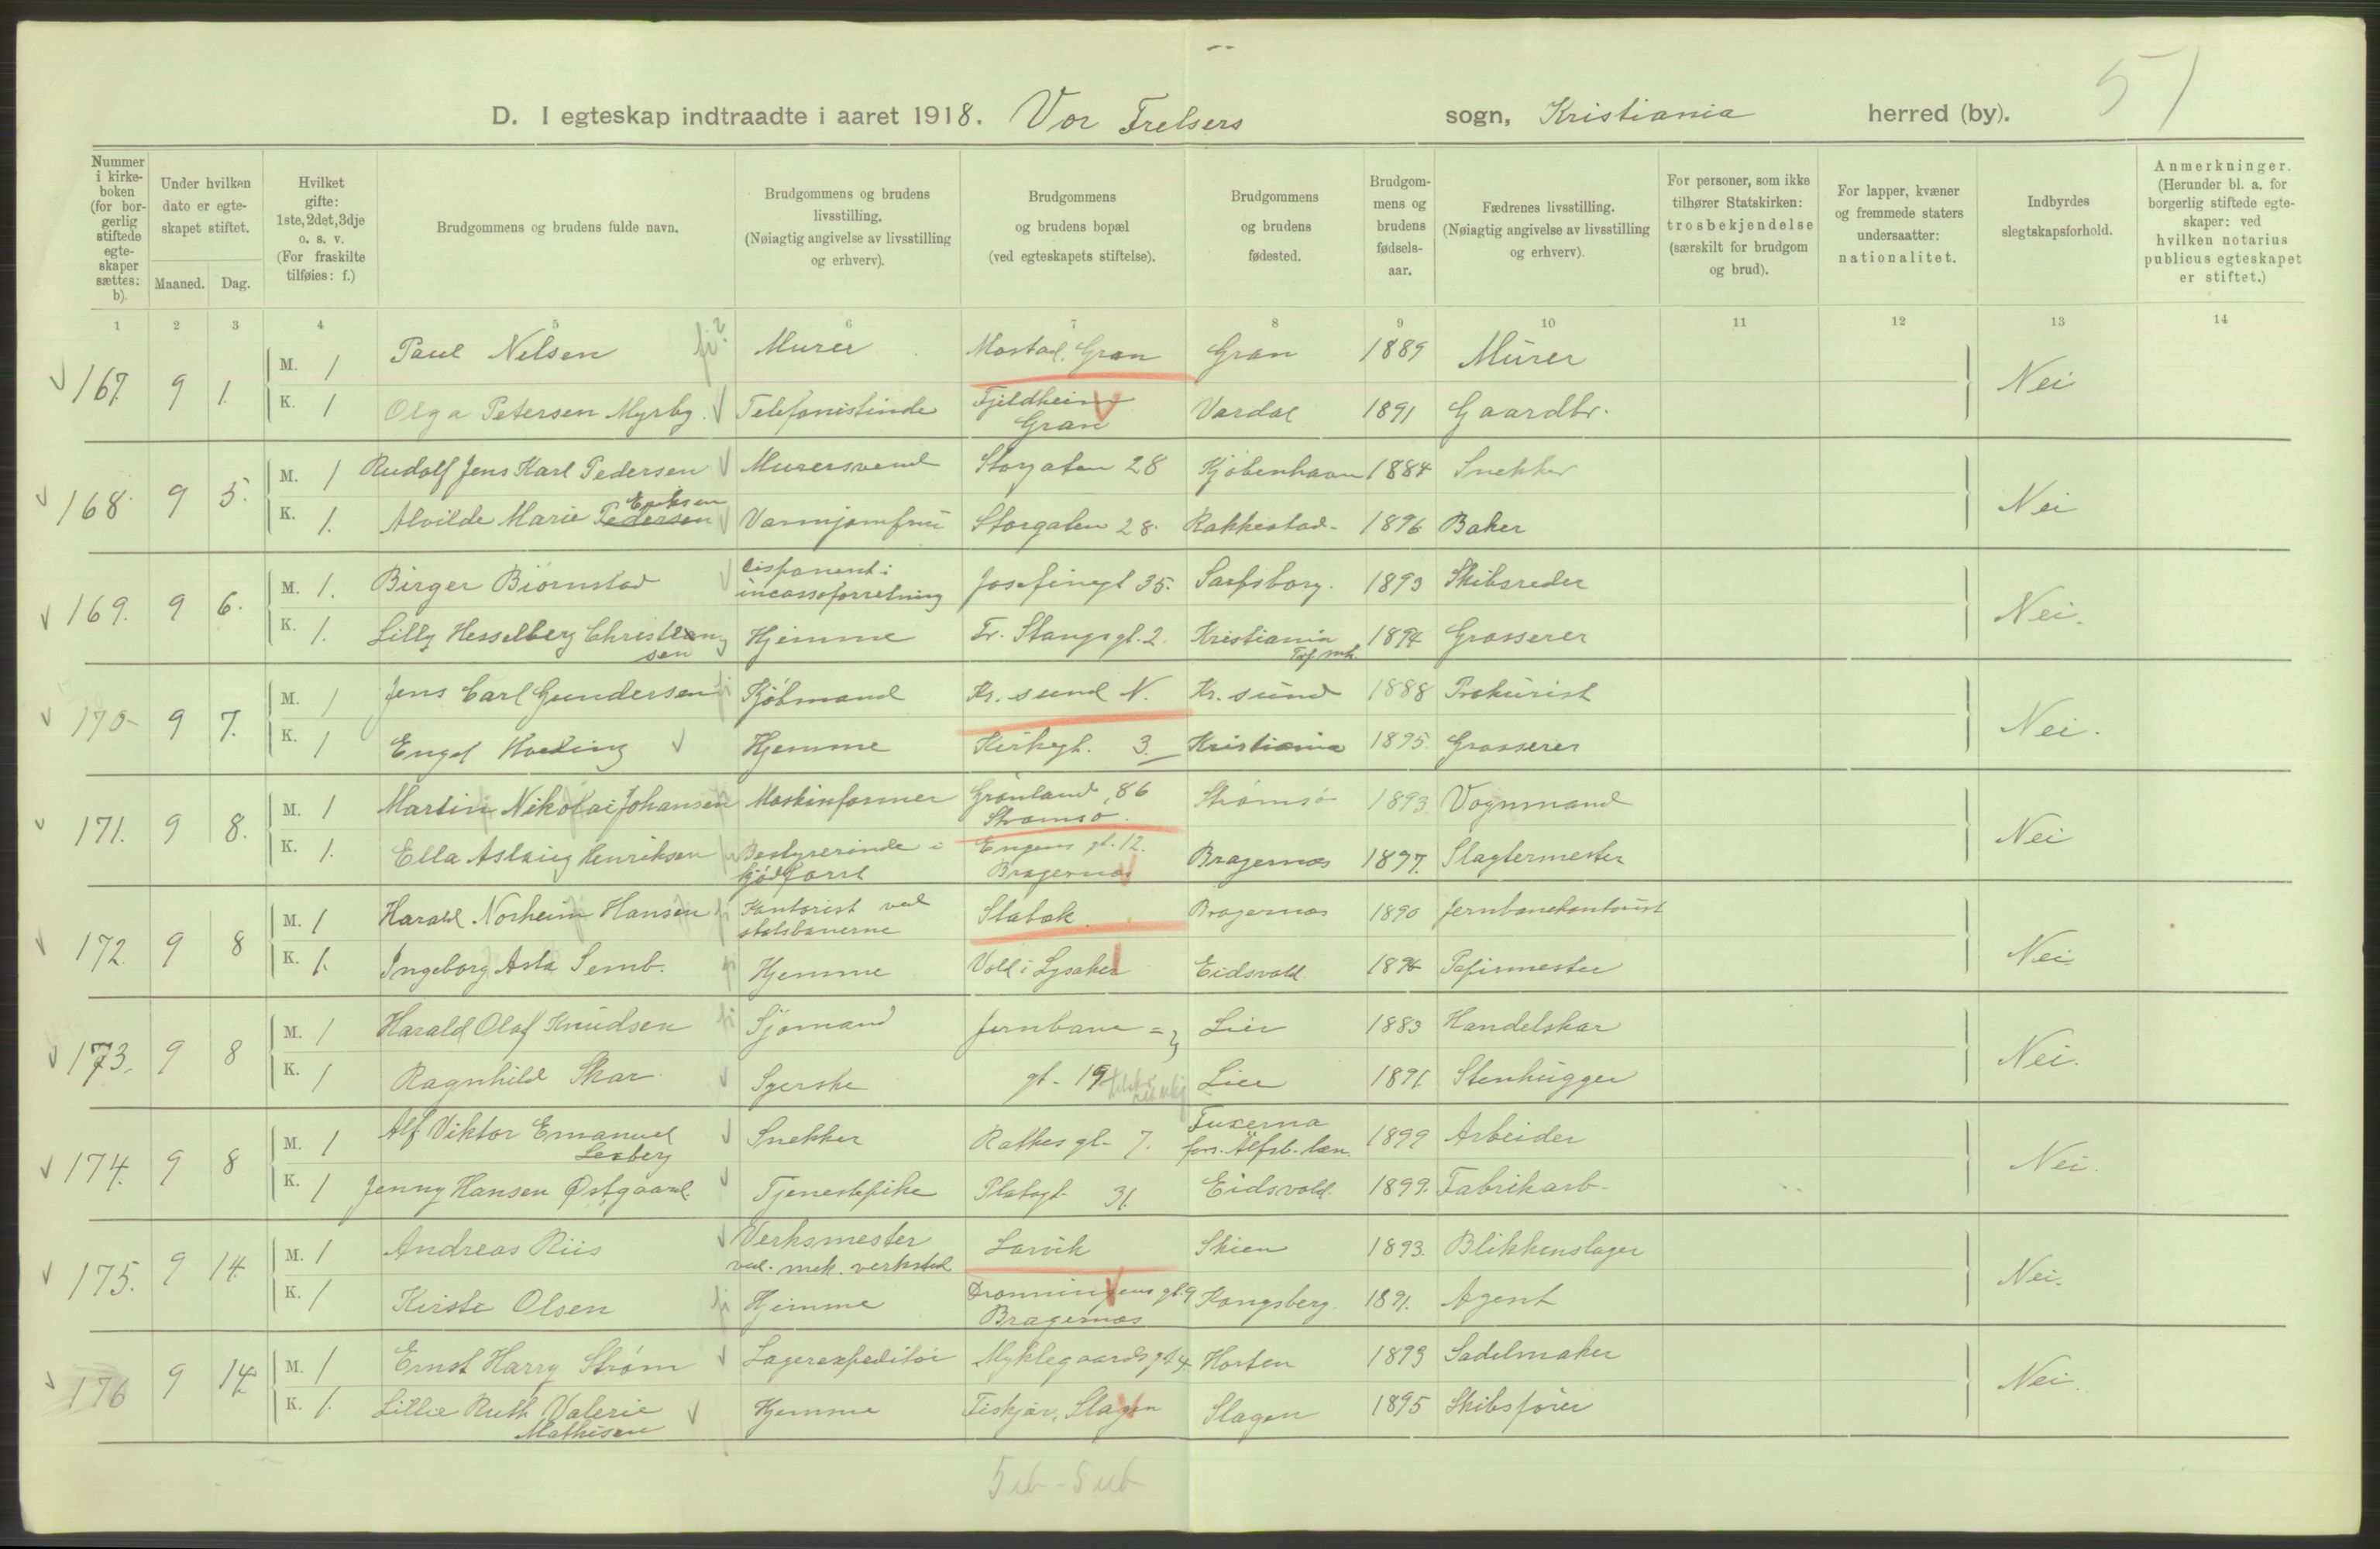 51
D. I egteskap indtraadte i aaret 1918. Vor Frelsers sogn, Kristiania herred (by).
Nummer i kirkeboken (for borgerlig stiftede egteskaper sættes: b).
Under hvilken dato er egteskapet stiftet.
Maaned. Dag.
Hvilket gifte: 1ste, 2det, 3dje o. s. v. (For fraskilte tilføies: f.)
Brudgommens og brudens fulde navn.
Brudgommens og brudens livsstilling. (Nøiagtig angivelse av livsstilling og erhverv).
Brudgommens og brudens bopæl (ved egteskapets stiftelse).
Brudgommens og brudens fødested.
Brudgommens og brudens fødselsaar.
Fædrenes livsstilling. (Nøiagtig angivelse av livsstilling og erhverv).
For personer, som ikke tilhører Statskirken: trosbekjendelse (særskilt for brudgom og brud).
For lapper, kvæner og fremmede staters undersaatter: nationalitet.
Indbyrdes slegtskapsforhold.
Anmerkninger. (Herunder bl. a. for borgerlig stiftede egteskaper: ved hvilken notarius publicus egteskapet er stiftet.)
1 2 3 4 5 6 7 8 9 10 11 12 13 14
167 9 1. M. 1 Paul Nelsen Murer Mostad, Gran Gran 1889 Murer Nei
K. 1 Olga Petersen Myrby Telefonistinde Fjeldheim Gran Vardal 1891 Gaardbr.
168. 9 5. M. 1 Rudolf Jens Karl Pedersen Murersvend Storgaten 28 Kjøbenhavn 1884 Snekker Nei
K. 1. Alvilde Marie Pedersen Eriksen Varmjomfru Storgaten 28. Rakkestad 1896 Baker
169. 9 6. M. 1. Birger Biørnstad disponent i incassoforretning Josefinegt 35. Sarpsborg. 1893 Skibsreder Nei.
K. 1. Lilly Hesselberg Christensen Hjemme Fr. Stangsgt. 2. Kristiania 1894 Grosserer
170 9 7. M. 1 Jens Carl Gundersen Kjøbmand Kr. sund N. Kr. sund 1888 Prokurist Nei.
K. 1 Engel Hveding Hjemme Kirkegt. 3. Kristiania 1895 Grosserer
171. 9 8. M. 1 Martin Nikolai Johansen Maskinformer Grønland, 86 Strømsø. Strømsø 1893 Vognmand Nei
K. 1. Ella Aslaug Henriksen Bestyrerinde i kjødforr Engens gt. 12. Bragernæs Bragernæs 1897. Slagtermester
172. 9 8 M. 1 Harald Norheim Hansen Kontorist ved statsbanerne Stabæk Bragernæs 1890 Jernbanekontorist Nei
K. 1. Ingeborg Asta Semb. Hjemme Vold i Lysaker Eidsvold 1894 Papirmester
173. 9 8 M. 1 Harald Olaf Knudsen Sjømand Jernbane= Lier 1883 Handelskar Nei.
K. 1 Ragnhild Skar Syerske gt. 19 Lier 1891 Stenhugger
174. 9 8 M. 1 Alf Viktor Emanuel Lexberg Snekker Rathkes gt. 7. Tuxerna fors. Elfsb. læn 1899 Arbeider Nei.
K. 1 Jenny Hansen Østgaard. Tjenestepike Platogt. 31. Eidsvold 1899. Fabrikarb.
175. 9 14. M. 1 Andreas Riis Verksmester ved mek. verksted Larvik Skien 1893. Blikkenslager Nei.
K. 1 Kirste Olsen Hjemme Dronningens gt. 9 Bragernæs Kongsberg. 1891. Agent
176 9 14 M. 1 Ernst Harry Strøm Lagerexpeditør Myklegaardsgt 4 Horten 1893 Sadelmaker Nei.
K. 1. Lillie Ruth Valerie Mathisen Hjemme Fiskjær, Slagen Slagen 1895 Skibsfører